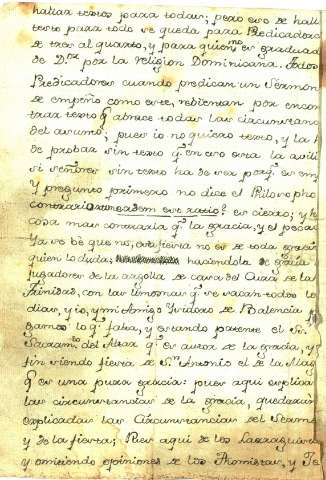 hallar texto para todas; pero eso de hallar
texto para todo se queda para Predicadores
de tres al quarto, y para quien no es graduado
de D.or por la religion Dominicana. Todos
Predicadores cuando predican un Sermon
de empeño como este, rebientan por encon
trar texto q abrace todas las circunstanc
del asumo; pues io no quiero texto, y la h
de probar sin texto q.e en eso esta la avili
si señores sin texto ha de ser porq.e es em
Y pregunto primero no dice el Philosopho
contrariorum eadem est ratio? es cierto; y h
cosa mas contraria q.e la gracia, y el pecado
Ya se bé que no, esta fiesta no es de toda gracia
quien lo duda; haciendola de gracia
jugadores de la argolla de casa del Cura de la
Trinidad, con las limosnas q.e se sacan todos lo
dias, y io, y mi Amigo Ysidoro de Balencia p
gamos lo q.e falta, y estando patente el S.n
Sacram.to del Altar q.e es autor de la gracia, y
fin siendo fiesta de S.n Antonio el de la Mag
q es una pura gracia: pues aqui esplica
las circunstancias de la gracia, quedaran
esplicadas las Circunstancias del Sermon
y de la fiesta; Pues aqui de los
y omitiendo opiniones de los Thomistas, y Te